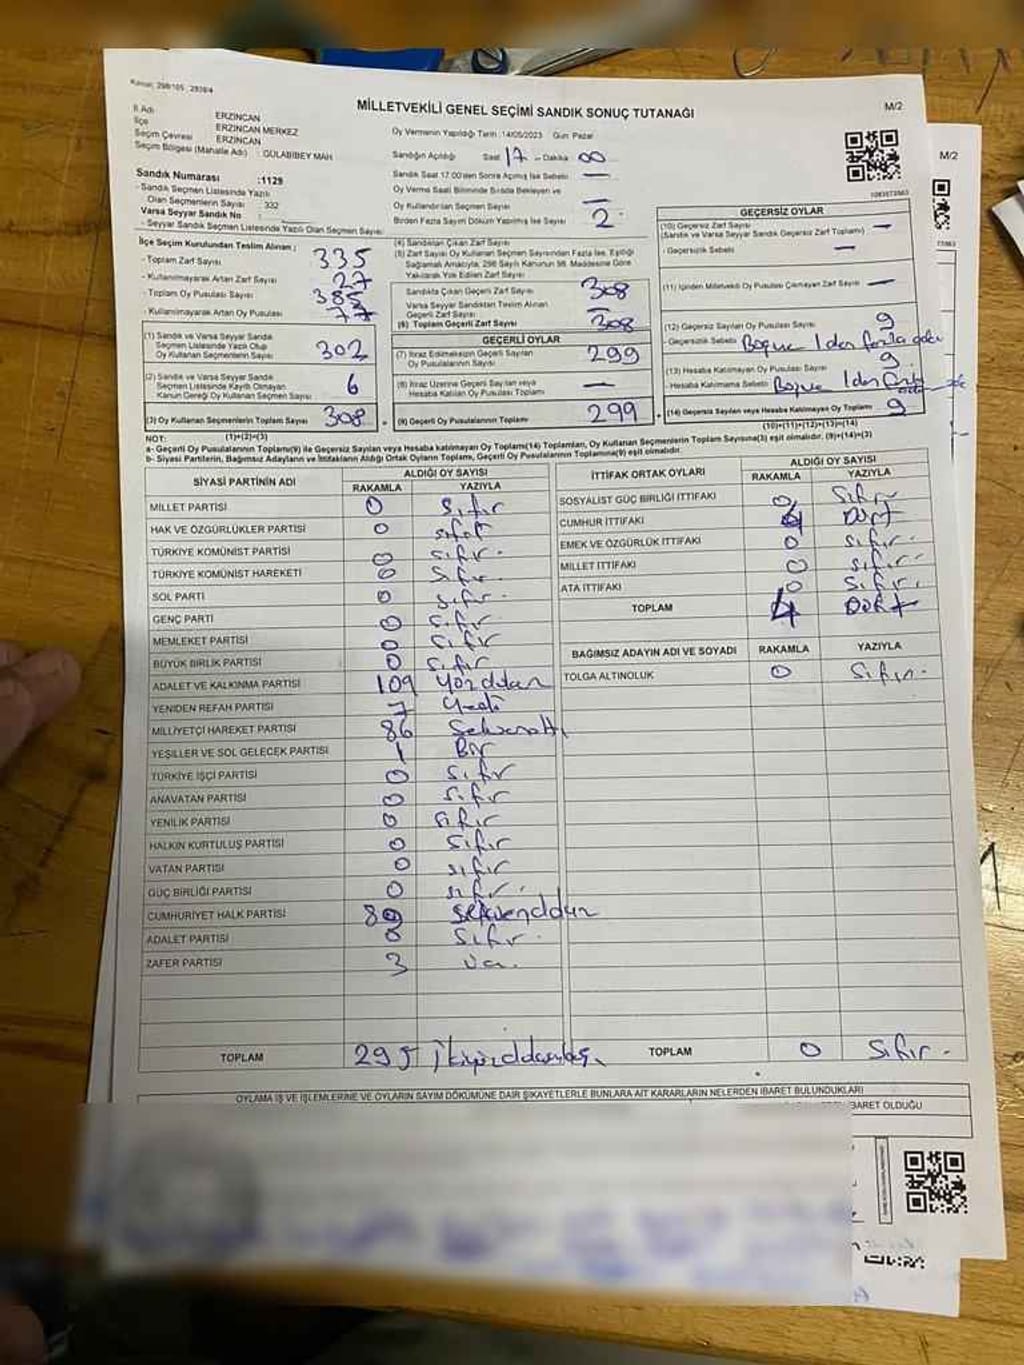 Kanun: 298/105 2839/4
MİLLETVEKİLİ GENEL SEÇİMİ SANDIK SONUÇ TUTANAĞI
M/2
İl Adı ERZİNCAN
İlçe ERZİNCAN MERKEZ
Seçim Çevresi ERZİNCAN
Seçim Bölgesi (Mahalle Adı) : GÜLABİBEY MAH
Sandık Numarası :1129
- Sandık Seçmen Listesinde Yazılı
Olan Seçmenlerin Sayısı : 332
Varsa Seyyar Sandık No :
- Seyyar Sandık Seçmen Listesinde Yazılı Olan Seçmen Sayısı
Oy Vermenin Yapıldığı Tarih :14/05/2023 Gün: Pazar
Sandığın Açıldığı Saat 17 - Dakika 00
Sandık Saat 17.00'den Sonra Açılmış İse Sebebi —
Oy Verme Saati Bitiminde Sırada Bekleyen ve
Oy Kullandırılan Seçmen Sayısı —
Birden Fazla Sayım Döküm Yapılmış İse Sayısı 2
İlçe Seçim Kurulundan Teslim Alınan ;
- Toplam Zarf Sayısı 335
- Kullanılmayarak Artan Zarf Sayısı 27
- Toplam Oy Pusulası Sayısı 385
- Kullanılmayarak Artan Oy Pusulası 77
(1) Sandık ve Varsa Seyyar Sandık
Seçmen Listesinde Yazılı Olup
Oy Kullanan Seçmenlerin Sayısı 302
(2) Sandık ve Varsa Seyyar Sandık
Seçmen Listesinde Kayıtlı Olmayan
Kanun Gereği Oy Kullanan Seçmen Sayısı 6
(3) Oy Kullanan Seçmenlerin Toplam Sayısı 308
(1)+(2)=(3)
(4) Sandıktan Çıkan Zarf Sayısı
(5) Zarf Sayısı Oy Kullanan Seçmen Sayısından Fazla İse, Eşitliği
Sağlamak Amacıyla, 298 Sayılı Kanunun 98. Maddesine Göre
Yakılarak Yok Edilen Zarf Sayısı
Sandıkta Çıkan Geçerli Zarf Sayısı 308
Varsa Seyyar Sandıktan Teslim Alınan
Geçerli Zarf Sayısı —
(6) Toplam Geçerli Zarf Sayısı 308
GEÇERLİ OYLAR
(7) İtiraz Edilmeksizin Geçerli Sayılan
Oy Pusulalarının Sayısı 299
(8) İtiraz Üzerine Geçerli Sayılan veya
Hesaba Katılan Oy Pusulaları Toplamı —
(9) Geçerli Oy Pusulalarının Toplamı 299
GEÇERSİZ OYLAR
(10) Geçersiz Zarf Sayısı
(Sandık ve Varsa Seyyar Sandık Geçersiz Zarf Toplamı) —
- Geçersizlik Sebebi —
(11) İçinden Milletvekili Oy Pusulası Çıkmayan Zarf Sayısı —
(12) Geçersiz Sayılan Oy Pusulası Sayısı 9
- Geçersizlik Sebebi 1 den fazla
(13) Hesaba Katılmayan Oy Pusulası Sayısı 9
- Hesaba Katılmama Sebebi 1 den
(14) Geçersiz Sayılan veya Hesaba Katılmayan Oy Toplamı 9
(10)+(11)+(12)+(13)=(14)
NOT:
a- Geçerli Oy Pusulalarının Toplamı(9) ile Geçersiz Sayılan veya Hesaba katılmayan Oy Toplam(14) Toplamları, Oy Kullanan Seçmenlerin Toplam Sayısına(3) eşit olmalıdır. (9)+(14)=(3)
b- Siyasi Partilerin, Bağımsız Adayların ve İttifakların Aldığı Ortak Oyların Toplamı, Geçerli Oy Pusulalarının Toplamına(9) eşit olmalıdır.
SİYASİ PARTİNİN ADI ALDIĞI OY SAYISI
RAKAMLA YAZIYLA
MİLLET PARTİSİ 0 Sıfır
HAK VE ÖZGÜRLÜKLER PARTİSİ 0 sıfır
TÜRKİYE KOMÜNİST PARTİSİ 0 sıfır
TÜRKİYE KOMÜNİST HAREKETİ 0 sıfır
SOL PARTİ 0 sıfır
GENÇ PARTİ 0 sıfır
MEMLEKET PARTİSİ 0 sıfır
BÜYÜK BİRLİK PARTİSİ 0 sıfır
ADALET VE KALKINMA PARTİSİ 109
YENİDEN REFAH PARTİSİ 7 Yedi
MİLLİYETÇİ HAREKET PARTİSİ 86
YEŞİLLER VE SOL GELECEK PARTİSİ 1 Bir
TÜRKİYE İŞÇİ PARTİSİ 0 sıfır
ANAVATAN PARTİSİ 0 sıfır
YENİLİK PARTİSİ 0 sıfır
HALKIN KURTULUŞ PARTİSİ 0 sıfır
VATAN PARTİSİ 0 sıfır
GÜÇ BİRLİĞİ PARTİSİ 0 sıfır
CUMHURİYET HALK PARTİSİ 89
ADALET PARTİSİ 0 sıfır
ZAFER PARTİSİ 3 üç
TOPLAM 295
İTTİFAK ORTAK OYLARI ALDIĞI OY SAYISI
RAKAMLA YAZIYLA
SOSYALİST GÜÇ BİRLİĞİ İTTİFAKI 0 Sıfır
CUMHUR İTTİFAKI 4 Dört
EMEK VE ÖZGÜRLÜK İTTİFAKI 0 sıfır
MİLLET İTTİFAKI 0 sıfır
ATA İTTİFAKI 0 sıfır
TOPLAM 4 Dört
BAĞIMSIZ ADAYIN ADI VE SOYADI RAKAMLA YAZIYLA
TOLGA ALTINOLUK 0 Sıfır
TOPLAM 0 Sıfır
OYLAMA İŞ VE İŞLEMLERİNE VE OYLARIN SAYIM DÖKÜMÜNE DAİR ŞİKAYETLERLE BUNLARA AİT KARARLARIN NELERDEN İBARET BULUNDUKLARI
BARET OLDUĞU
M/2